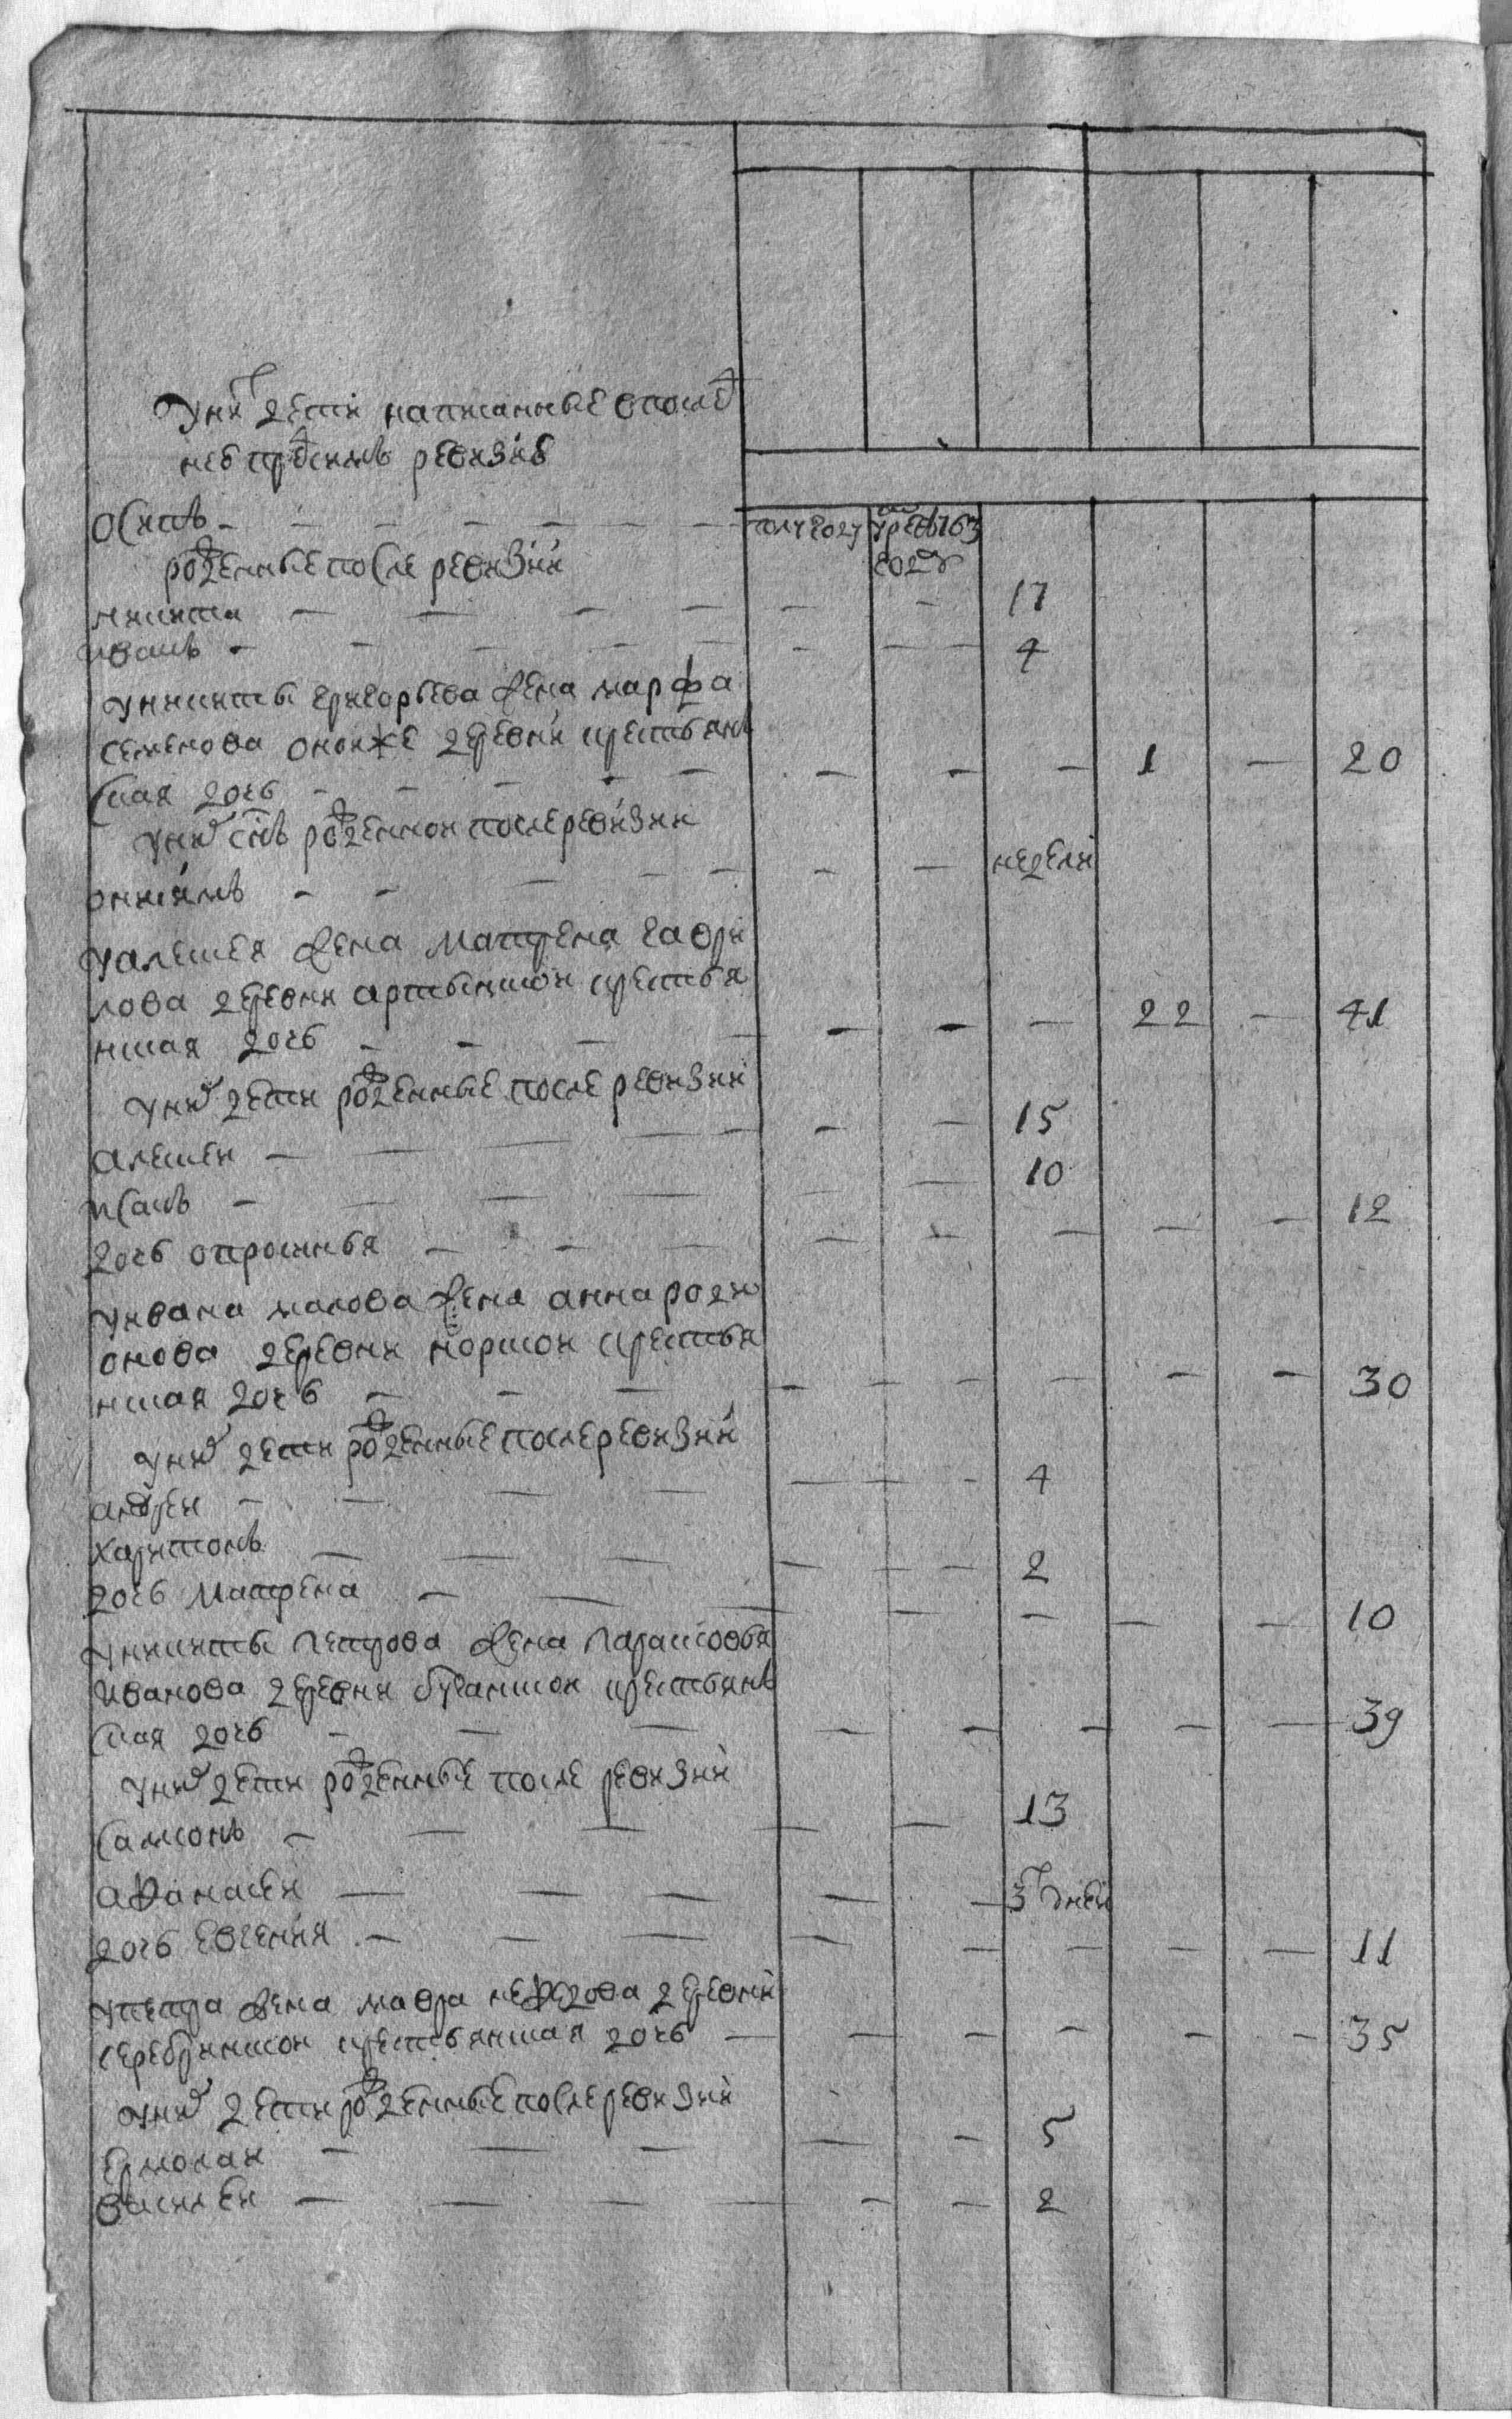 У них дети написанные в послед
неб пред симъ ревизиѣ
Осипъ - - - - - - - полугоду умре въ 763
году
рожденные после ревизии
Никита - - - - - - 17
Иванъ - - - - - - - 4
У Никиты Григорьева жена Марфа
Семенова оной же деревни крестьянъ
ская дочь - - - - - - - - 1 - 20
У них сынъ рожденной после ревизии
Онисимъ - - - - - - - недели
У Алексея жена Матрена Гаври
лова деревни Артынской крестья
нская дочь - - - - - - - 22 - 41
У них дети рожденные после ревизии
Алексей - - - - - - 15
Исакъ - - - - - - 10
дочь Опросинья - - - - - - - - 12
У Ивана Малова жена Анна Роди
онова деревни Норской крестья
нская дочь - - - - - - - - - 30
У них дети рожденные после ревизии
Андрей - - - - - - - 4
Харитонъ - - - - - - 2
дочь Матрена - - - - - - - 10
У Никиты Петрова жена Парасковья
Иванова деревни Бутанской крестьянъ
ская дочь - - - - - - - - 39
У них дети рожденные после ревизии
Самсонъ - - - - - 13
Афанасей - - - - - 3 дней
дочь Евгения - - - - - - - - 11
У Петра жена Мавра Нефедова деревни
Серебринской крестьянская дочь - - - - - - 35
У них дети рожденные после ревизии
Ермолай - - - - - 5
Василей - - - - - - 2